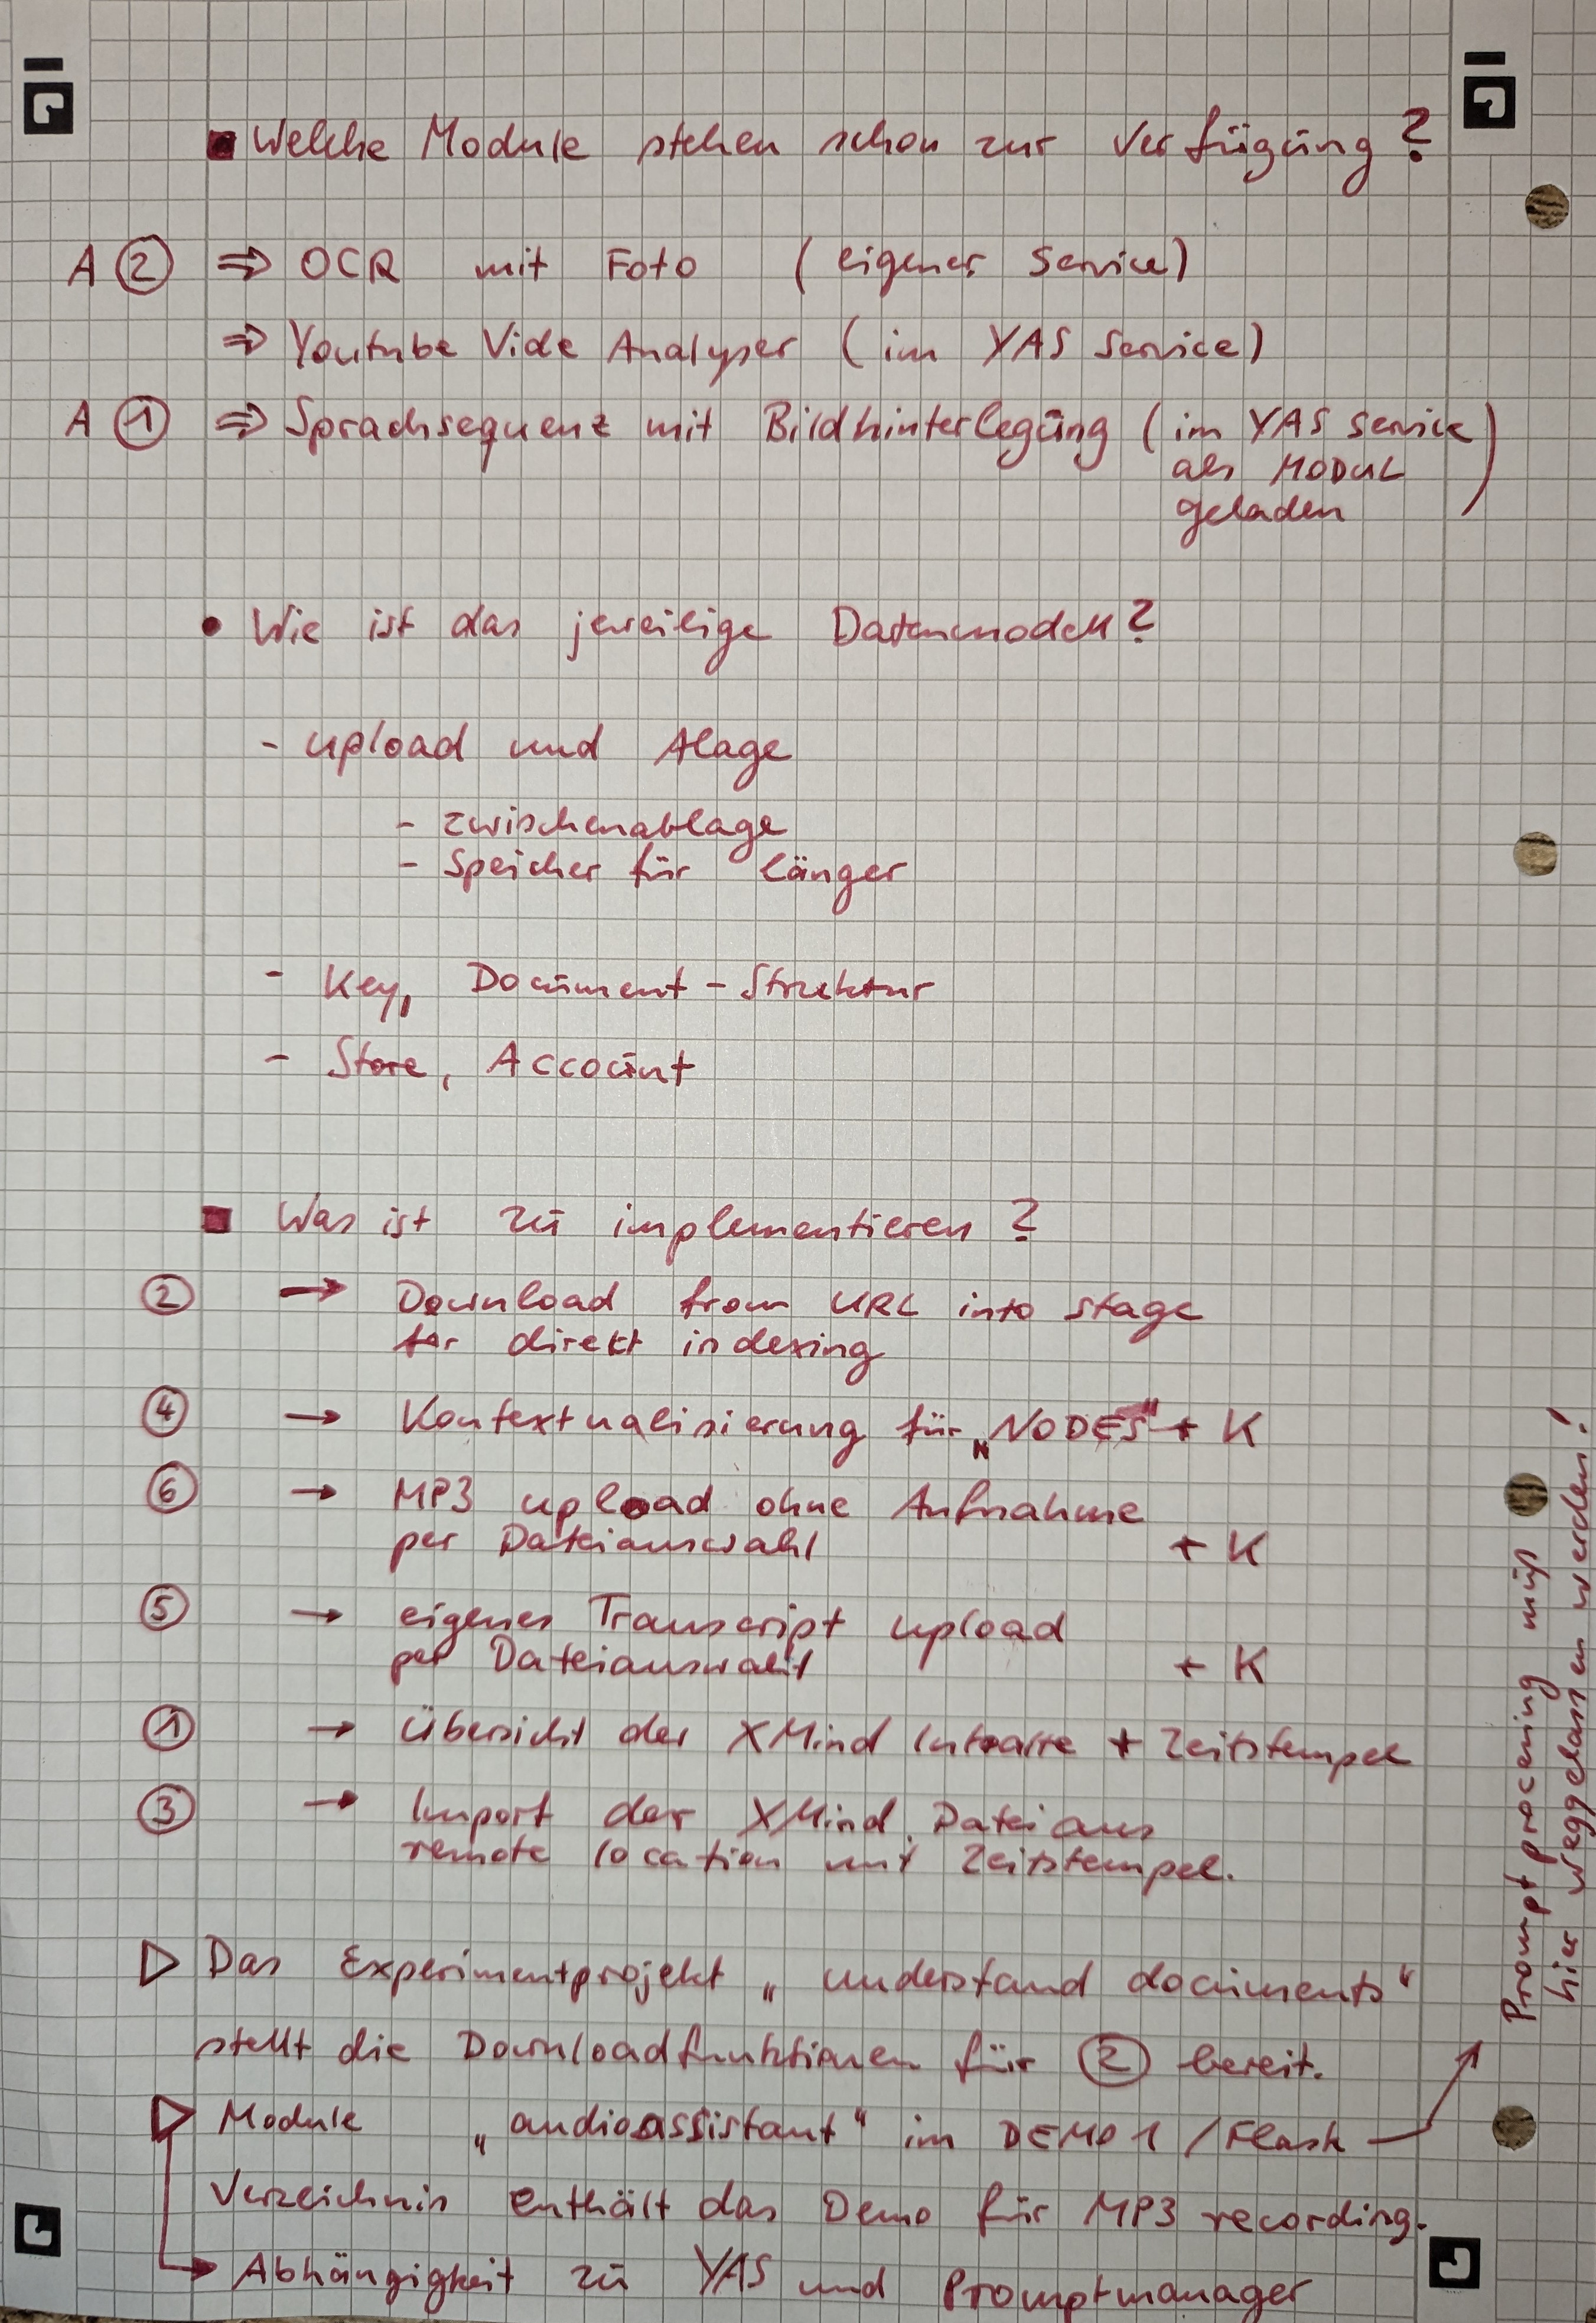 ■ Welche Module stehen schon zur Verfügung?
A ② ⇒ OCR mit Foto (eigener Service)
⇒ Youtube Vide Analyser (im YAS Service)
A ① ⇒ Sprachsequenz mit Bildhinterlegung (im YAS Service
als MODUL
geladen)
• Wie ist das jeweilige Datenmodell?
- upload und Alage
- Zwischenablage
- Speicher für länger
- Key, Document-Struktur
- Store, Account
■ Was ist zu implementieren?
② → Download from URL into stage
for direkt indexing
④ → Kontextualisierung für „NODES" + K
⑥ → MP3 upload ohne Aufnahme
per Dateiauswahl + K
⑤ → eigenes Transcript upload
per Dateiauswahl + K
① → Übersicht der XMind + Zeitstempel
③ → Import der XMind Datei aus
remote location mit Zeitstempel.
▷ Das Experimentprojekt „understand documents"
stellt die Downloadfunktionen für ② bereit.
▷ Module „audioassistant" im DEMO1/Flask
Verzeichnis enthält das Demo für MP3 recording.
→ Abhängigkeit zu YAS und Promptmanager
Prompt processing muß
hier weggelassen werden!